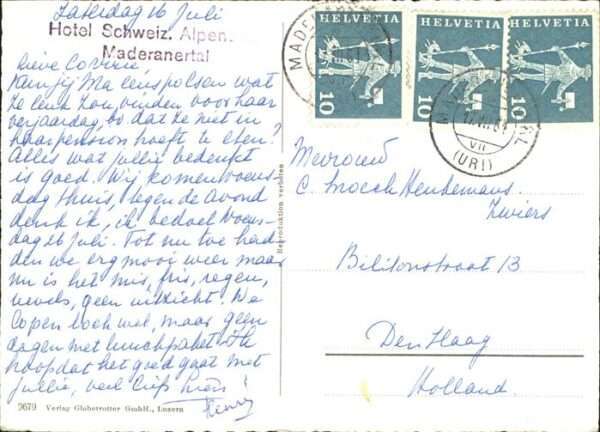 Zaterdag 16 Juli
Hotel Schweiz. Alpen
Maderanertal
Lieve Corrie
Kun jij Ma eens polsen wat
ze leuk zou vinden voor haar
verjaardag, bv dat ze niet in
haar pension hoeft te eten?
Alles wat jullie bedenkt
is goed. Wij komen woens-
dag thuis, tegen de avond
denk ik, ik bedoel Woens-
dag 26 Juli. Tot nu toe had-
den we erg mooi weer maar
nu is het mis, fris, regen,
nevels, geen uitzicht. We
lopen toch wel, maar geen
dagen met lunchpakket. Ik
hoop dat het goed gaat met
jullie, veel liefs hiers!
Henny
2679 Verlag Globetrotter GmbH., Luzern
Reproduktion verboten
HELVETIA
10
HELVETIA
10
HELVETIA
10
VII
(URI)
Mevrouw
C. Snoeck Henkemans
Zwiers
Bilitonstraat 13
Den Haag
Holland